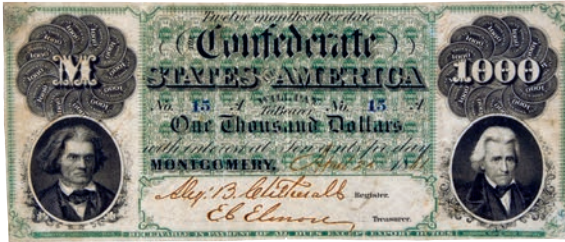 Twelve months after date
Confederate
M
STATES OF AMERICA
1000
WILL PAY
No. 15 A To Bearer No. 15 A
One Thousand Dollars
with interest at Ten cents per day
MONTGOMERY,
Alex. B. Clitherall Register.
E C Elmore Treasurer.
RECEIVABLE IN PAYMENT OF ALL DUES EXCEPT EXPORT DUTIES